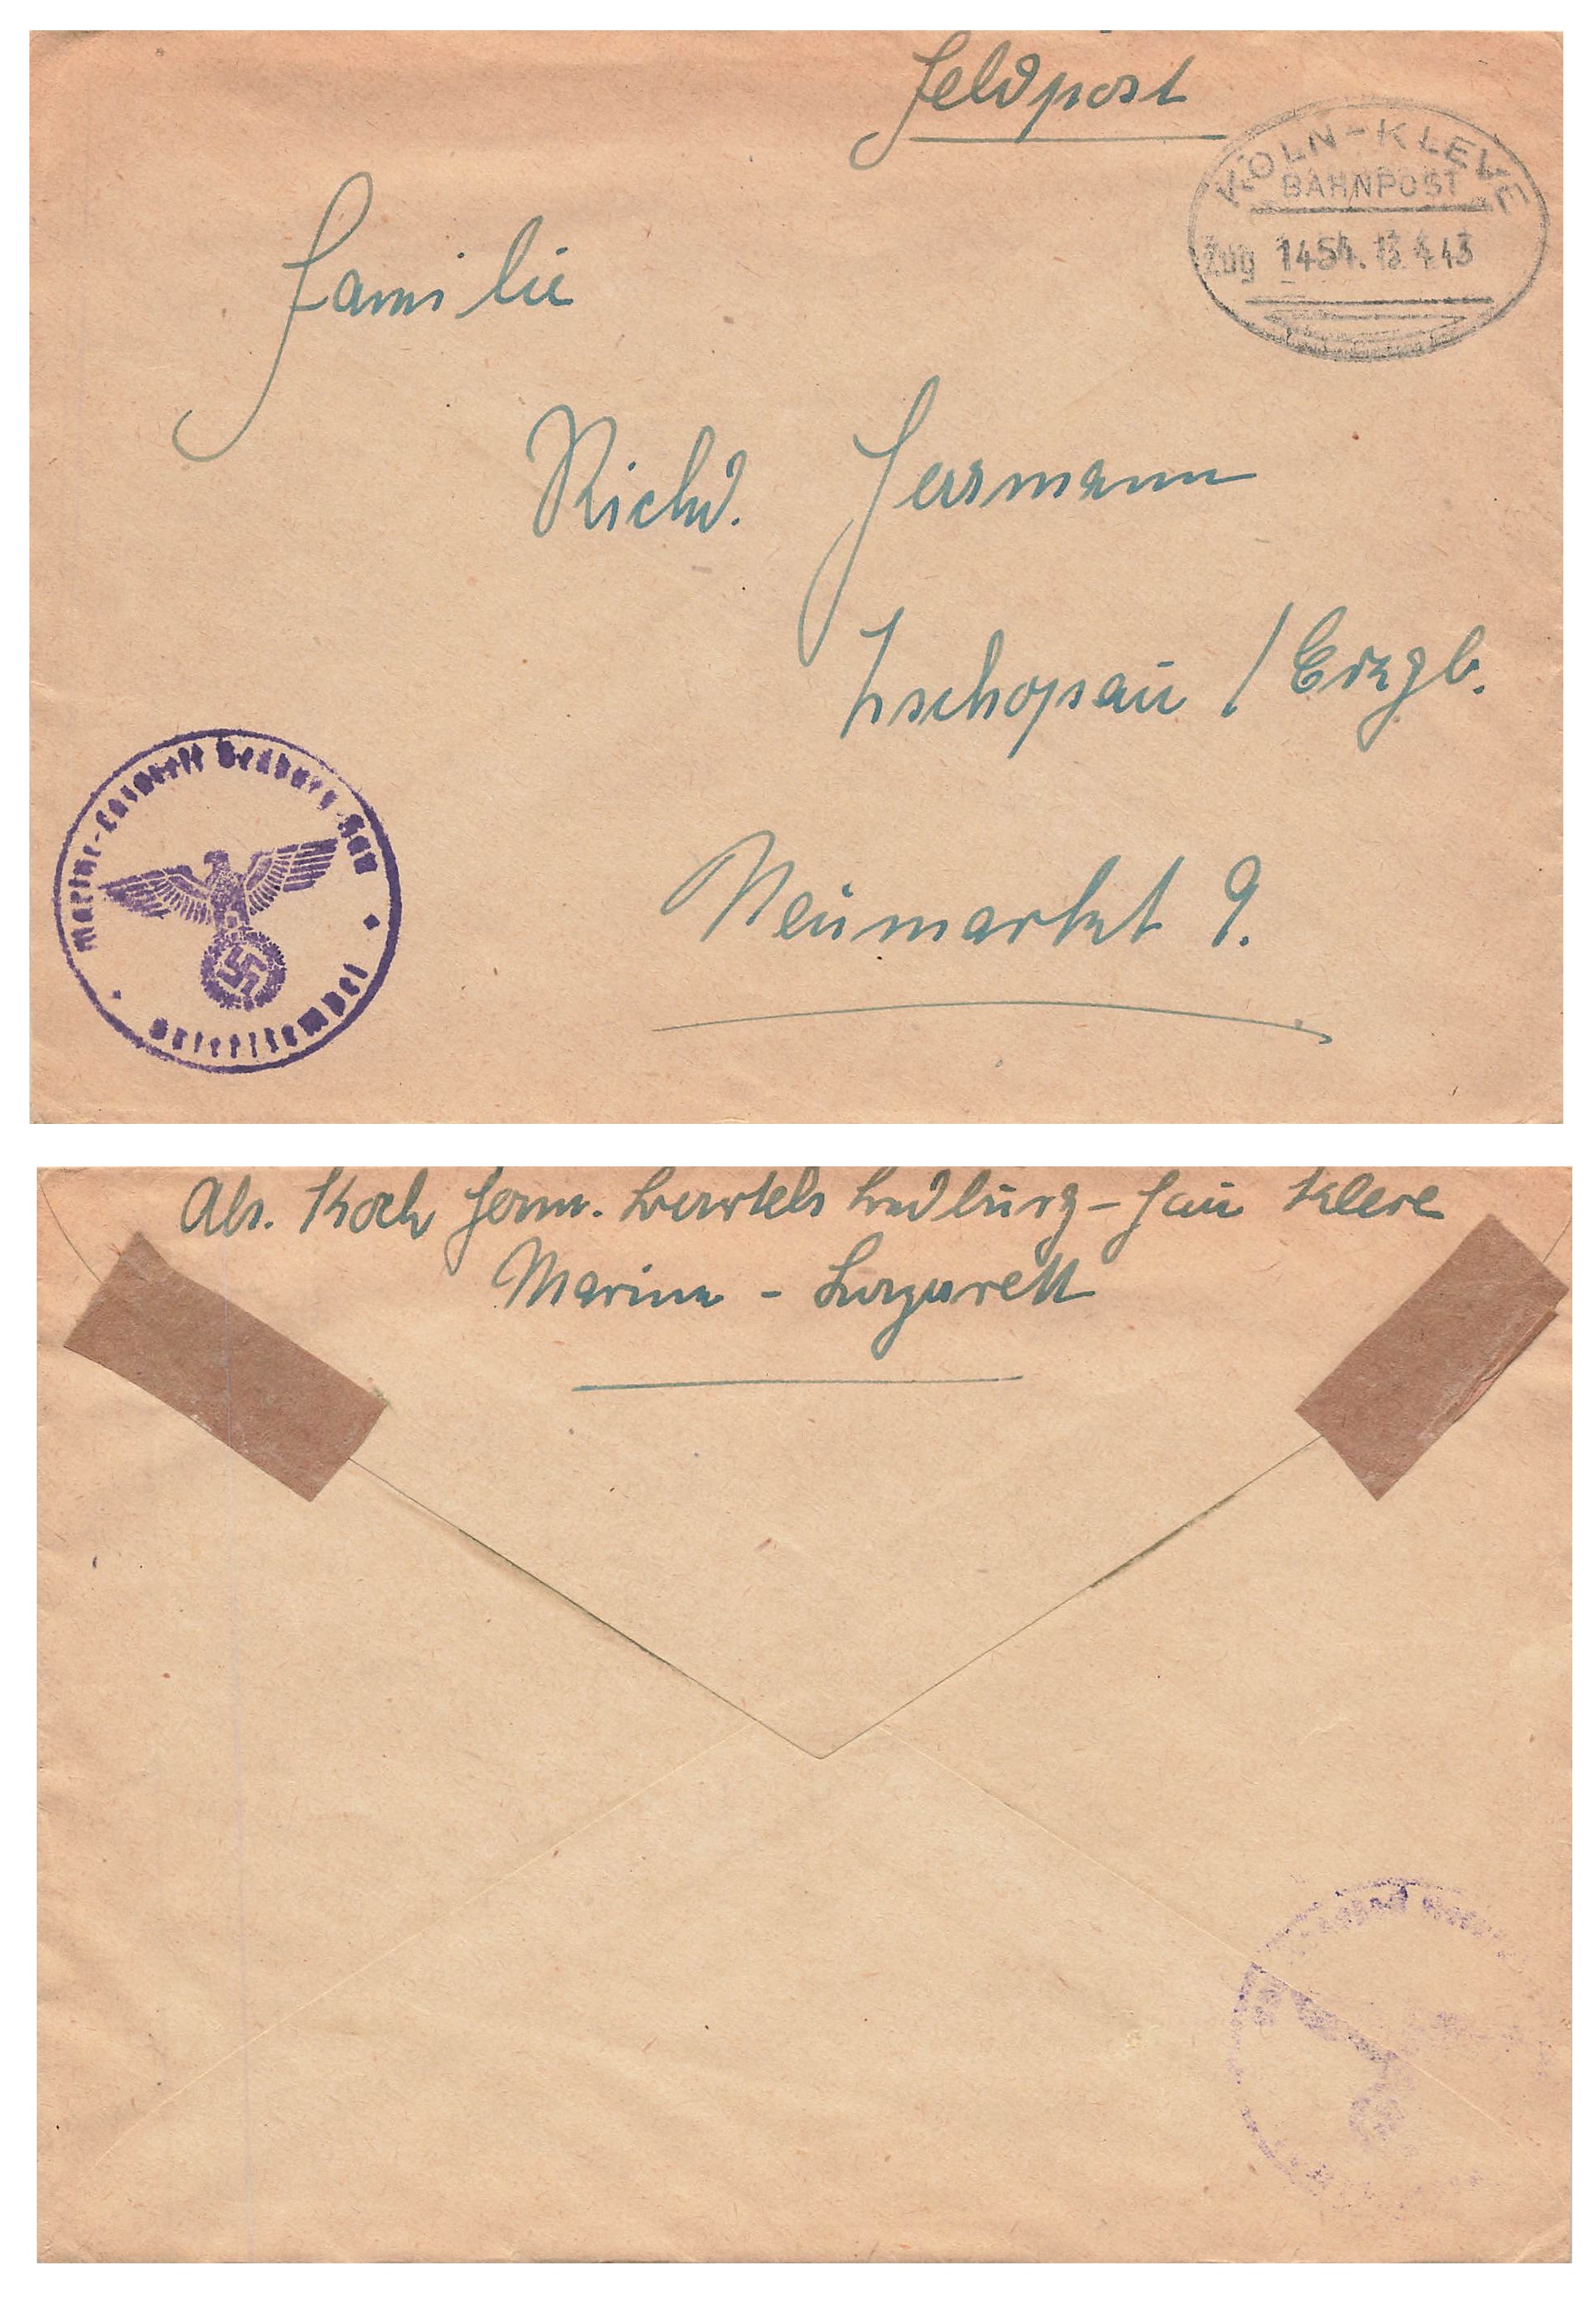 Feldpost
KÖLN-KLEVE
BAHNPOST
Zug 1454. 13 4 43
Familie
Richd. Hermann
Zschopau / Erzgb.
Neumarkt 9.
Marine-Lazarett Bedburg-Hau
Briefstempel
Abs. Koch Herm. Bedburg-Hau Kleve
Marine - Lazarett